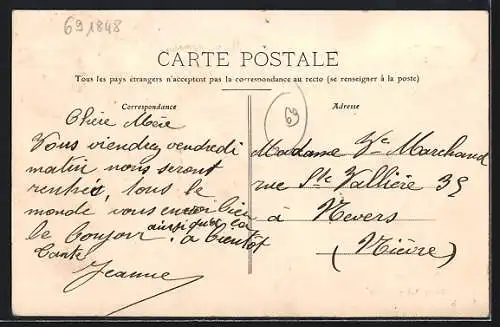 691848
CARTE POSTALE
Tous les pays étrangers n'acceptent pas la correspondance au recto (se renseigner à la poste)
Correspondance
Chère Mère
Vous viendrez vendredi
matin nous seront
rentrés, tous le
monde vous envoi bien
le bonjour. ainsi qu'à
à bientôt
tante
Jeanne
Adresse
69
Madame Ve Marchand
rue Ste Vallière 39
à Nevers
(Nièvre)